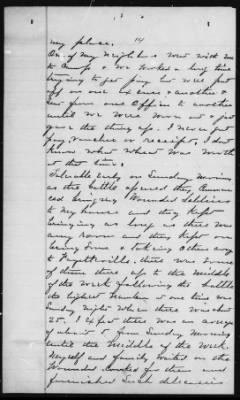 14
my place.
One of my neighbors now with me
to Camp & we worked a long time
trying to get pay but were put
off on one excuse & another &
sent from one Office to another
until we were worn out & just
gave the thing up. I never got
pay, voucher or receipt, I don't
know what wheat was worth
at that time.
Tolerable early on Sunday Morning
as the battle opened they commen
ced bringing Wounded Soldiers
to my house and they kept
bringing as long as there was
any room and they kept on
being some & taking others away
to Fayetteville. there was some
of them there up to the Middle
of the week following the battle
the highest number at one time was
Sunday Night when there was about
25. I expect there was an average
of about 5 from Sunday Morning
until the Middle of the Week.
Myself and family waited on the
Wounded Cooked for them and
furnished Such delicacies